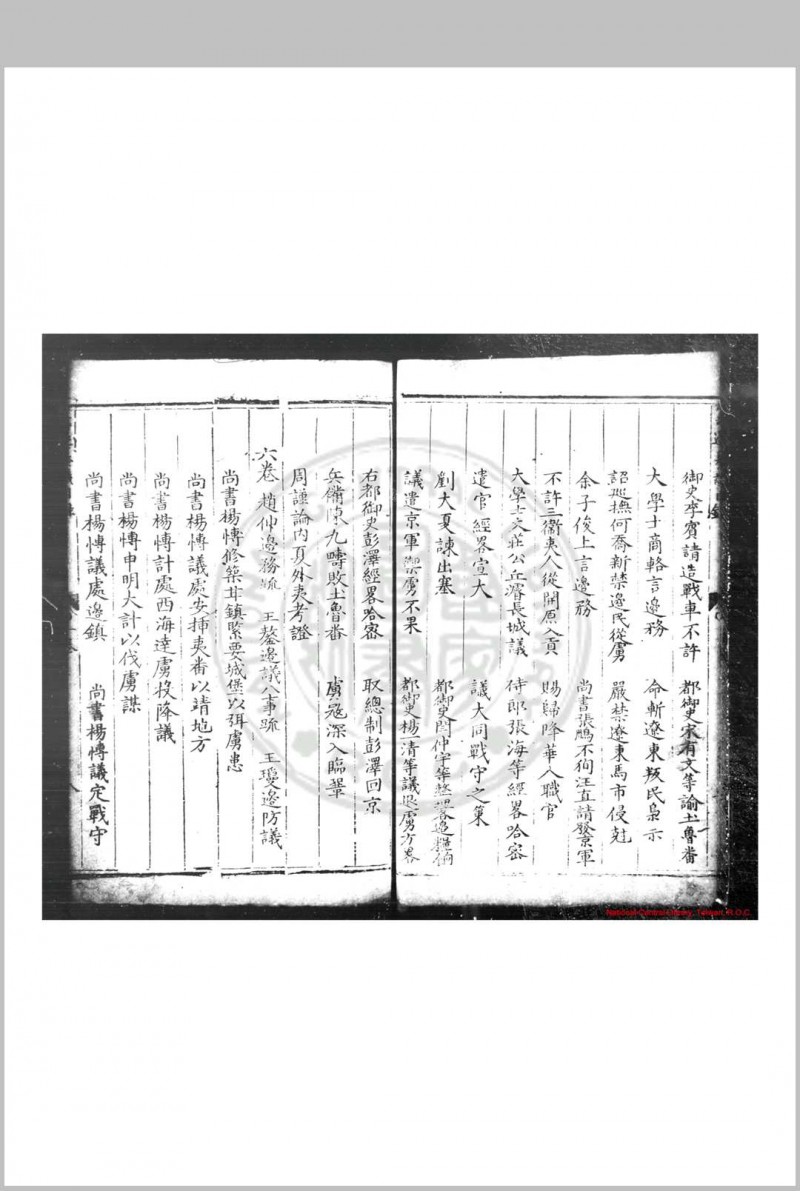 御史李賓請造戰車不許　都御史宋有文等諭土魯番
大學士商輅言邊務　命斬遼東叛民梟示
詔巡撫何喬新禁邊民從虜　嚴禁遼東馬市侵尅
余子俊上言邊務　尚書張鵬不狥汪直請發京軍
不許三衞夷人從開原入貢　賜歸降華人職官
大學士文莊公丘濬長城議　侍郎張海等經畧哈密
遣官經畧宣大　議大同戰守之策
劉大夏諫出塞　都御史閻仲宇等整理各邊糧餉
議遣京軍禦虜不果　都御史楊一清等議退虜方畧
右都御史彭澤經畧哈密　取總制彭澤回京
兵備陳九疇敗土魯番　虜寇深入臨鞏
周謙論內夏外夷考證
六卷　趙伸邊務疏　王鏊邊議八事疏　王瓊邊防議
尚書楊博修築茸鎮緊要城堡以弭虜患
尚書楊博議處安揷夷番以靖地方
尚書楊博計處西海達虜投降議
尚書楊博申明大計以伐虜謀
尚書楊博議處邊鎮　尚書楊博議定戰守
National Central Library, Taiwan, R.O.C.